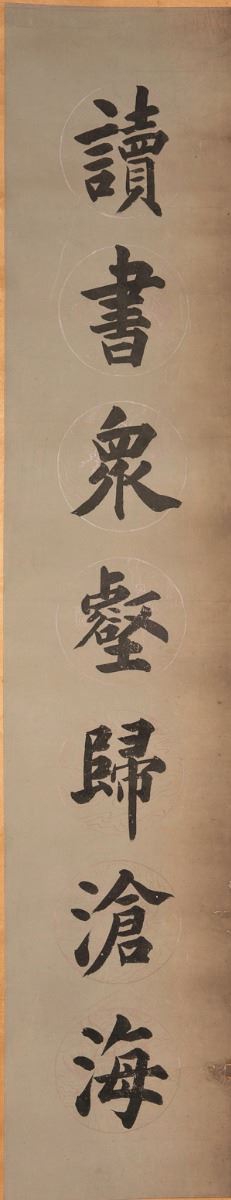 讀書衆壑歸滄海